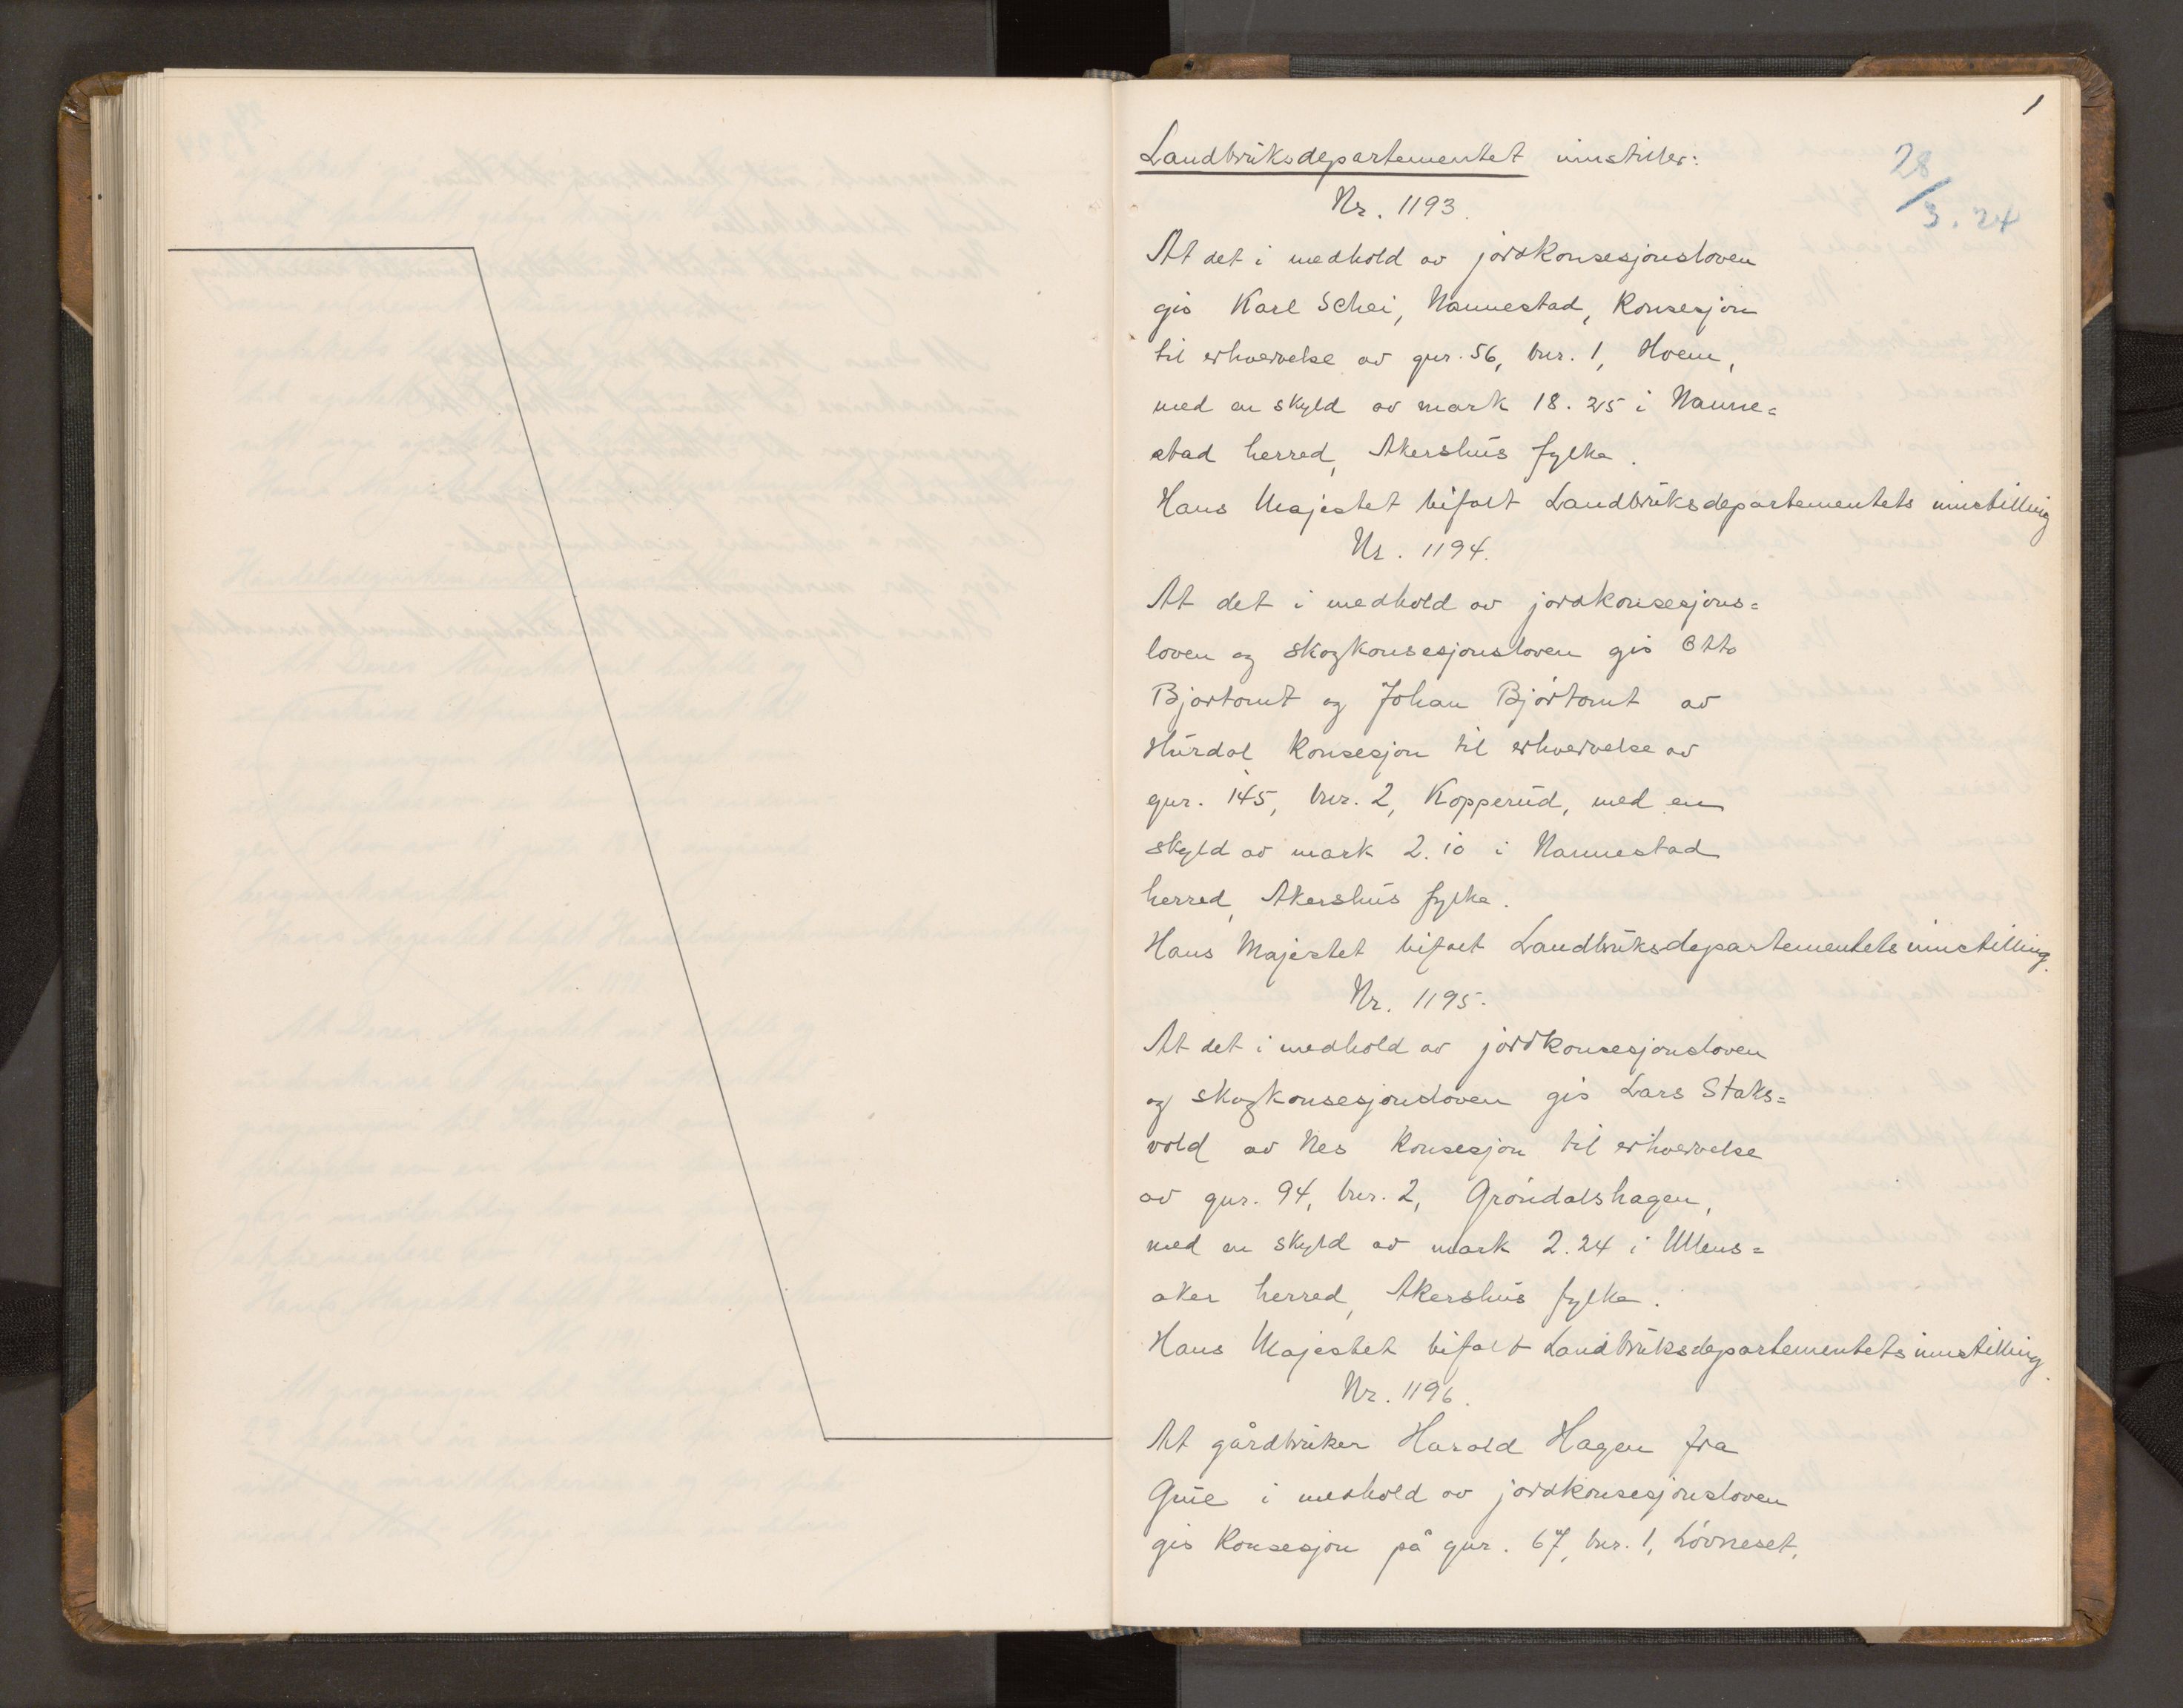 1
Landbruksdepartementet innstiller:
28/3.24
Nr. 1193.
At det i medhold av jordkonsesjonsloven
gis Karl Schei, Nannestad, konsesjon
til erhvervelse av gnr. 56, bnr. 1, Hoem,
med en skyld av mark 18.25 i Nanne=
stad herred, Akershus fylke.
Hans Majestet bifalt Landbruksdepartementets innstilling
Nr. 1194.
At det i medhold av jordkonsesjons=
loven og skogkonsesjonsloven gis Otto
Bjørtomt og Johan Bjørtomt av
Hurdal konsesjon til erhvervelse av
gnr. 145, bnr. 2, Kopperud, med en
skyld av mark 2.10 i Nannestad
herred, Akershus fylke.
Hans Majestet bifalt Landbruksdepartementets innstilling.
Nr. 1195.
At det i medhold av jordkonsesjonsloven
og skogkonsesjonsloven gis Lars Staks=
vold av Nes konsesjon til erhvervelse
av gnr. 94, bnr. 2, Grøndalshagen,
med en skyld av mark 2.24 i Ullens=
aker herred, Akershus fylke.
Hans Majestet bifalt Landbruksdepartementets innstilling.
Nr. 1196.
At gårdbruker Harald Hagen fra
Grue i medhold av jordkonsesjonsloven
gis konsesjon på gnr. 67, bnr. 1, Løvneset,